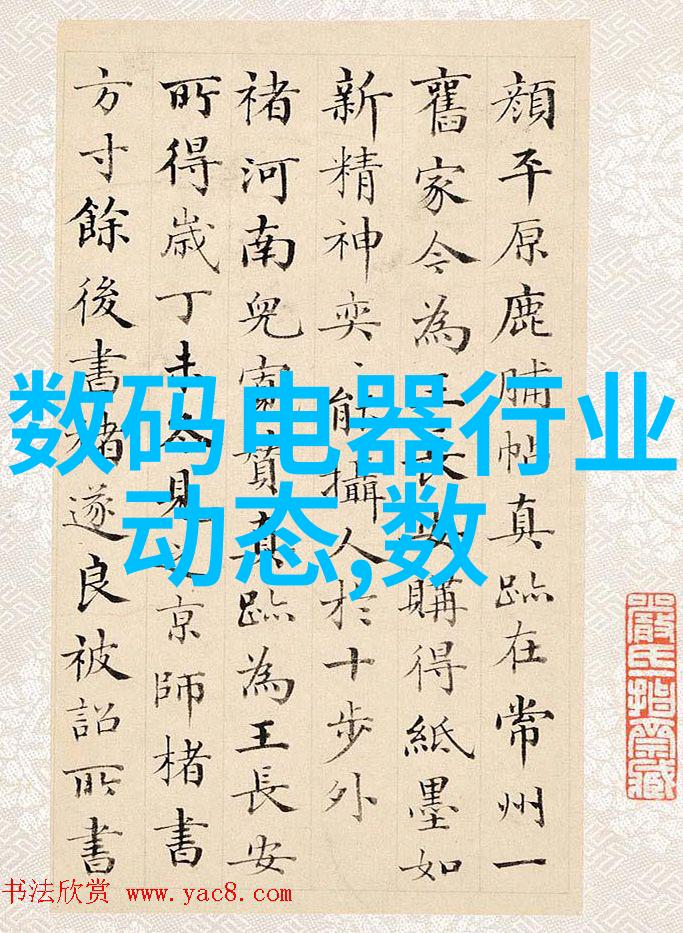 顏平原鹿脯帖真跡在常州一
舊家今為王長安購得紙墨如
新精神奕、能攝人於十步外
褚河南兒寬贊真跡為王長安
所得歲丁未余見之京師楮書
方寸餘後書褚遂良被詔所書
数码电器行业
动态,数
书法欣赏 www.yac8.com